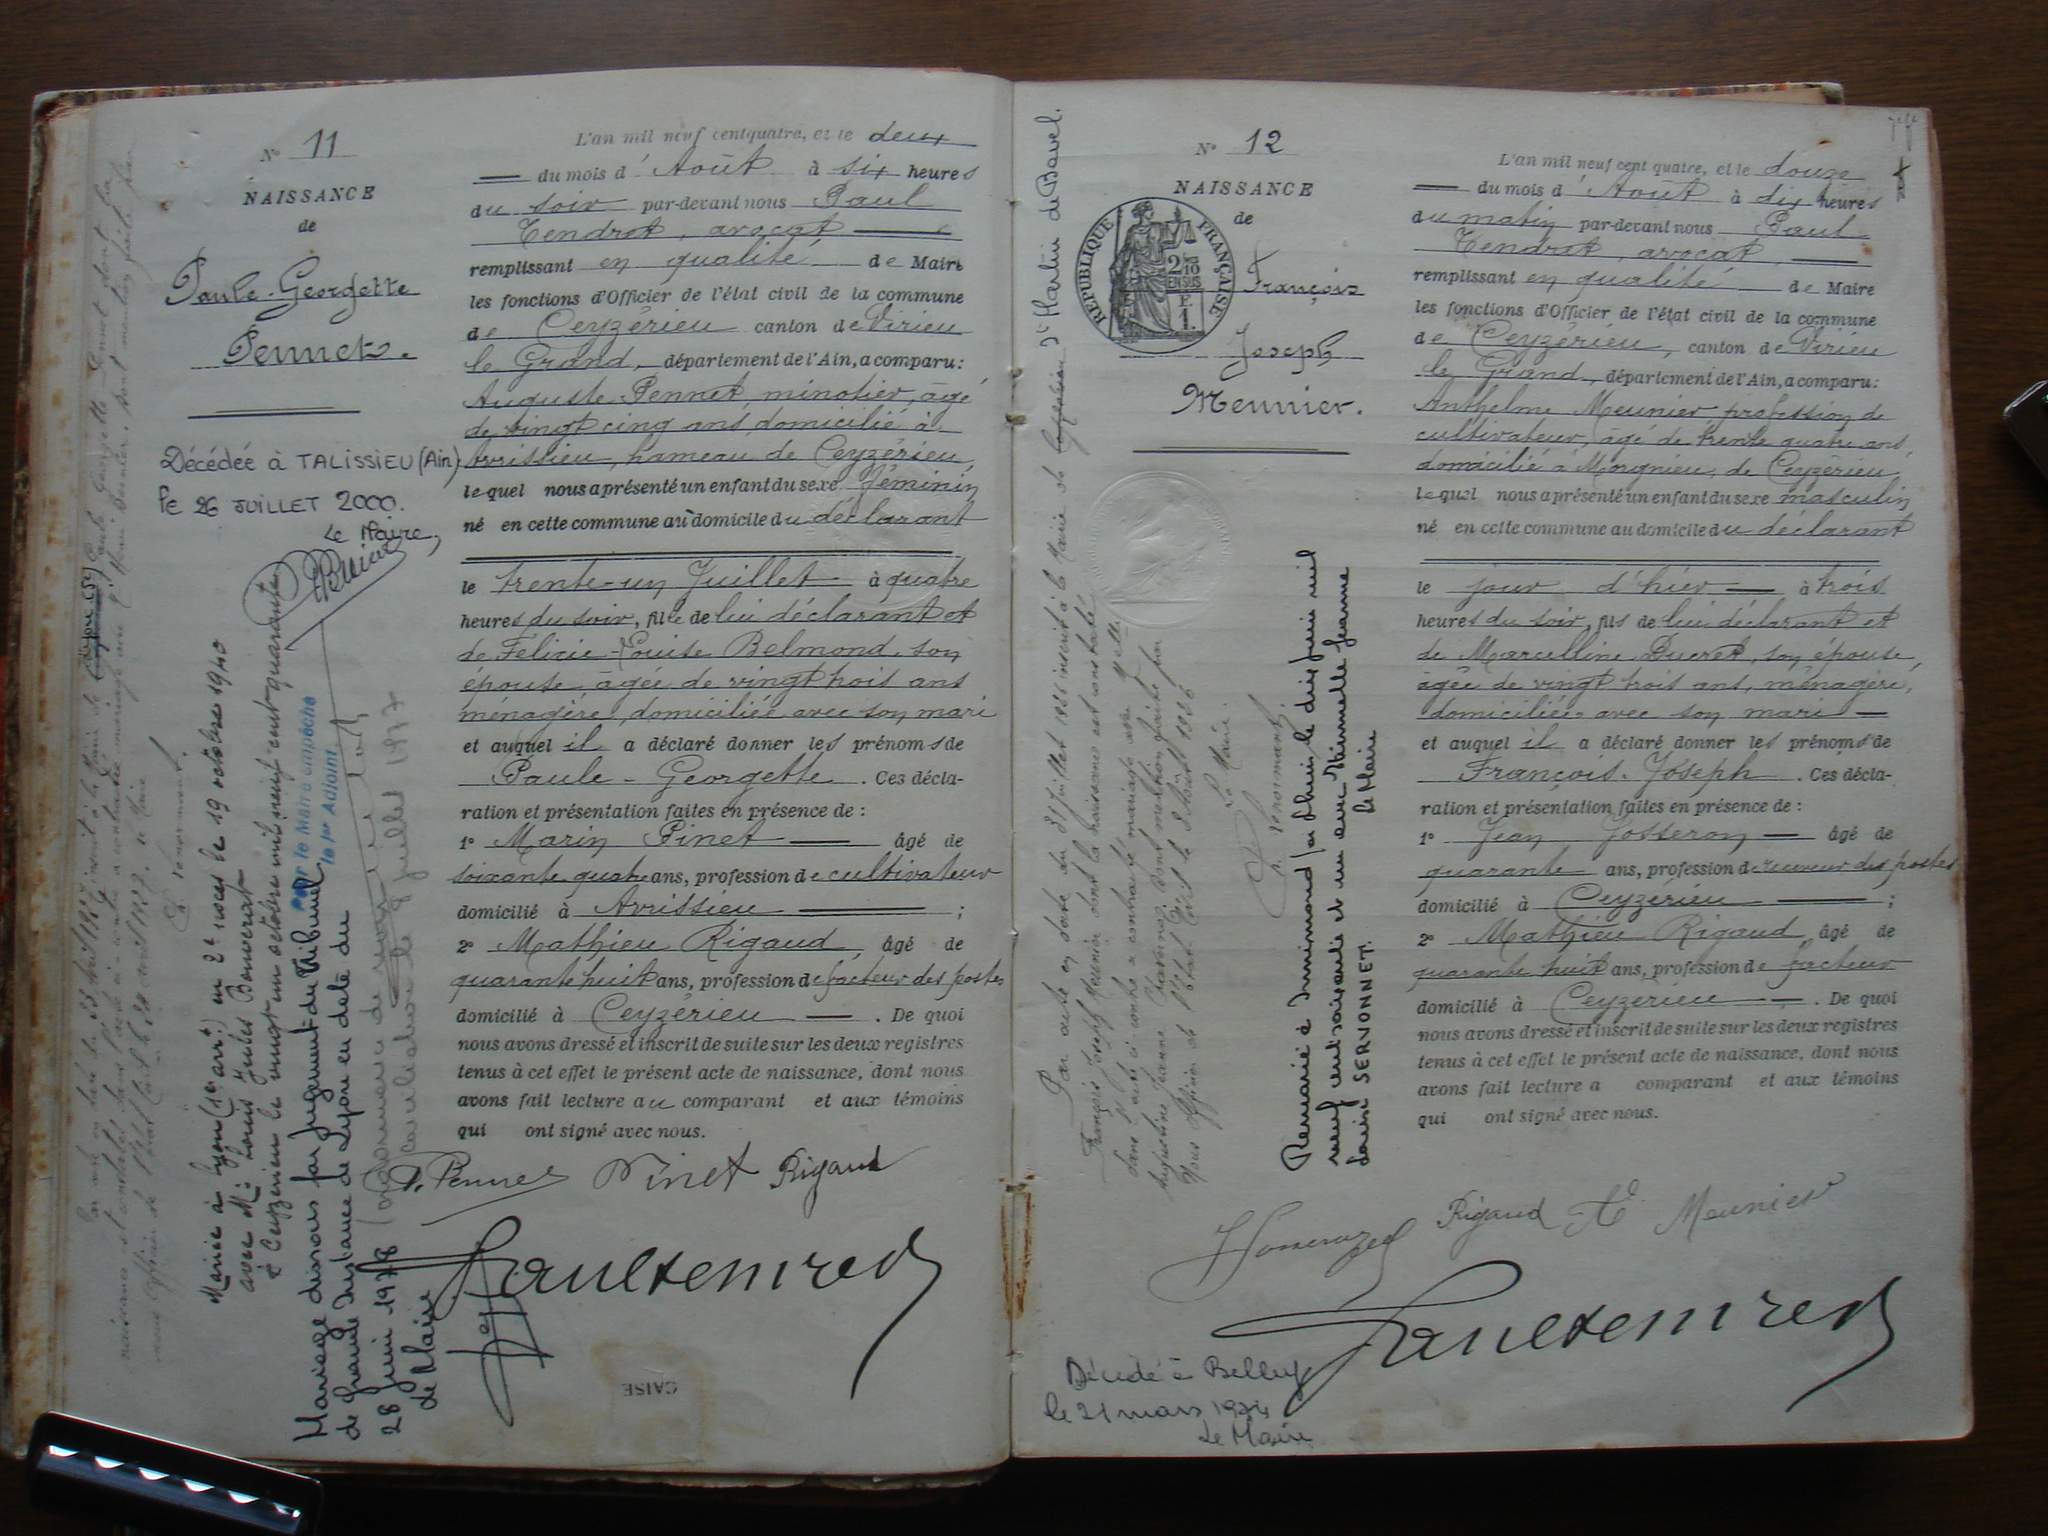 N° 11
NAISSANCE
de
Paule-Georgette
Pennet.
Décédée à TALISSIEU (Ain)
le 26 JUILLET 2000.
Le Maire,
L'an mil neuf cent quatre, et le deux
du mois d'Août à six heures
du soir par-devant nous Paul
Tendret, avocat
remplissant en qualité de Maire
les fonctions d'Officier de l'état civil de la commune
de Ceyzérieu canton de Virieu
le Grand, département de l'Ain, a comparu:
Auguste Pennet, minotier, âgé
de vingt cinq ans domicilié à
Avrissieu, hameau de Ceyzérieu,
lequel nous a présenté un enfant du sexe féminin
né en cette commune au domicile du déclarant
le trente-un Juillet à quatre
heures du soir, fille de lui déclarant et
de Félicie-Louise Belmond son
épouse, âgée de vingt trois ans
ménagère, domiciliée avec son mari
et auquel il a déclaré donner les prénoms de
Paule-Georgette. Ces décla-
ration et présentation faites en présence de :
1° Marin Pinet âgé de
soixante quatre ans, profession de cultivateur
domicilié à Avrissieu ;
2° Mathieu Rigaud âgé de
quarante huit ans, profession de facteur des postes
domicilié à Ceyzérieu. De quoi
nous avons dressé et inscrit de suite sur les deux registres
tenus à cet effet le présent acte de naissance, dont nous
avons fait lecture au comparant et aux témoins
qui ont signé avec nous.
A. Pennet Pinet Rigaud
Paul Tendret
Mariée à Lyon (1er arrt) en 2e noces le 19 octobre 1940
avec Mr Louis Jules Bonverat
à Ceyzérieu le vingt un octobre mil neuf cent quarante
Pour le Maire empêché
le 1er Adjoint
Mariage dissous par jugement du Tribunal
de Grande Instance de Lyon en date du
28 Juin 1978
le Maire
juillet 1977
CAISE
N° 12
NAISSANCE
de
REPUBLIQUE FRANÇAISE
2/10
EN SUS
F.
1.
François
Joseph
Meunier.
L'an mil neuf cent quatre, et le douze
du mois d'Août à dix heures
du matin par-devant nous Paul
Tendret, avocat,
remplissant en qualité de Maire
les fonctions d'Officier de l'état civil de la commune
de Ceyzérieu, canton de Virieu
le Grand, département de l'Ain, a comparu:
Anthelme Meunier profession de
cultivateur, âgé de trente quatre ans,
domicilié à Morgnieu, de Ceyzérieu
lequel nous a présenté un enfant du sexe masculin
né en cette commune au domicile du déclarant
le jour d'hier à trois
heures du soir, fils de lui déclarant et
de Marcelline Ducret, son épouse,
âgée de vingt trois ans, ménagère,
domiciliée avec son mari
et auquel il a déclaré donner les prénoms de
François-Joseph. Ces décla-
ration et présentation faites en présence de :
1° Jean Josseron âgé de
quarante ans, profession de receveur des postes
domicilié à Ceyzérieu ;
2° Mathieu Rigaud âgé de
quarante huit ans, profession de facteur
domicilié à Ceyzérieu. De quoi
nous avons dressé et inscrit de suite sur les deux registres
tenus à cet effet le présent acte de naissance, dont nous
avons fait lecture a comparant et aux témoins
qui ont signé avec nous.
Rigaud A Meunier
Paul Tendret
Par acte en date du 31 Juillet 1926 inscrit à la Mairie de St Martin de Bavel.
François Joseph Meunier dont la naissance est constatée
dans l'acte ci-contre a contracté mariage avec Melle
Augustine Jeanne
Nous Officier de l'Etat Civil le 2 Août 1926
Le Maire.
Remarié à Innimond par Lhuis le dix juin mil
neuf cent soixante et un avec Etiennette Jeanne
Louise SERVONNET.
le Maire
Décédé à Belley
le 21 mars 1974
Le Maire